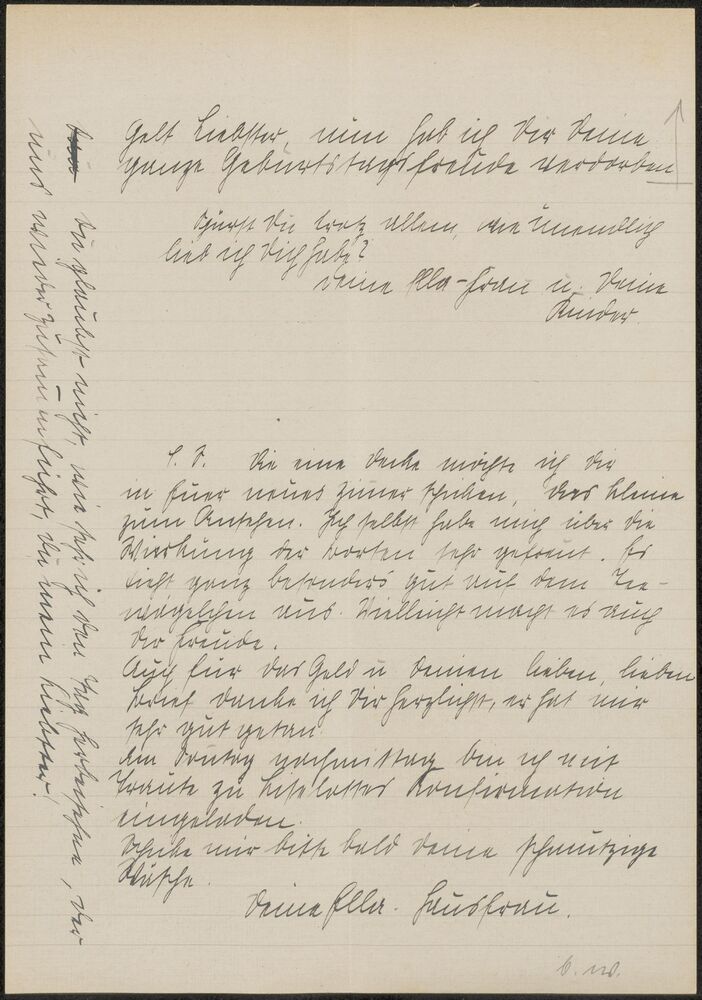 Gelt Liebster, nun hab ich Dir Deine
ganze Geburtstagsfreude verdorben
Spürst Du trotz allem, wie unendlich
lieb ich Dich habe?
Deine Ella-Frau u. Deine
Kinder.
P. S. Die eine Decke möchte ich Dir
in Euer neues Zimer schiken, das kleine
zum Ansehen. Ich selbst habe mich über die
Wirkung der Borten sehr gefreut. Es
sieht ganz besonders gut auf dem Tee-
wägelchen aus. Vielleicht macht es auch
Dir Freude.
Auch für das Geld u. Deinen lieben, lieben
Brief danke ich Dir herzlichst, er hat mir
sehr gut getan.
Am Sontag nachmittag bin ich mit
Traute zu Liselottes Konfirmation
eingeladen.
Schike mir bitte bald Deine schmutzige
Wäsche.
Deine Ella-Hausfrau.
b. w.
Du glaubst nicht, wie sehr ich den Tag herbeisehne, der
uns wieder zusamenführt, Du mein Liebster!